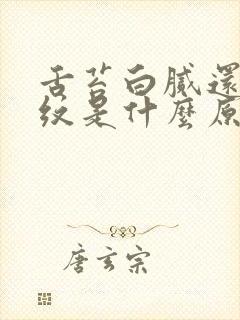 舌苔白膩還
紋是什麼原
唐玄宗